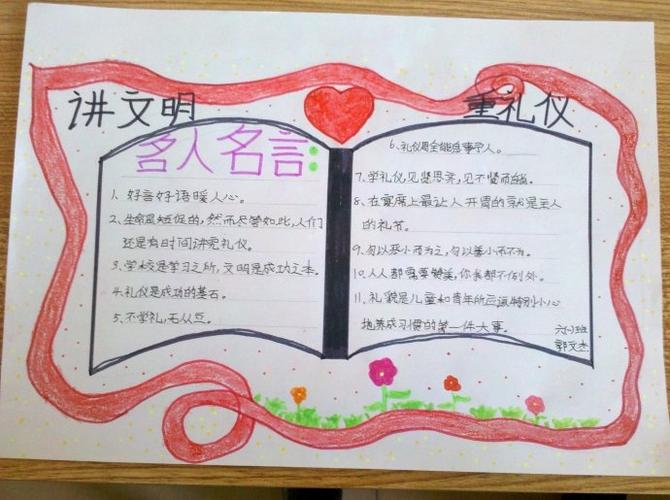 讲文明
重礼仪
名人名言:
1、好言好语暖人心。
2、生命是短促的,然而尽管如此,人们
还是有时间讲究礼仪。
3、学校是学习之所,文明是成功之本。
4、礼仪是成功的基石。
5、不学礼,无从立。
6、礼仪周全能息事宁人。
7、学礼仪见贤思齐,见不贤而自省。
8、在宴席上最让人开胃的就是主人
的礼节。
9、勿以恶小而为之,勿以善小而不为。
10、人人都需要赞美,你我都不例外。
11、礼貌是儿童和青年所应该特别小心
地养成习惯的第一件大事。
六(1)班
郭文杰